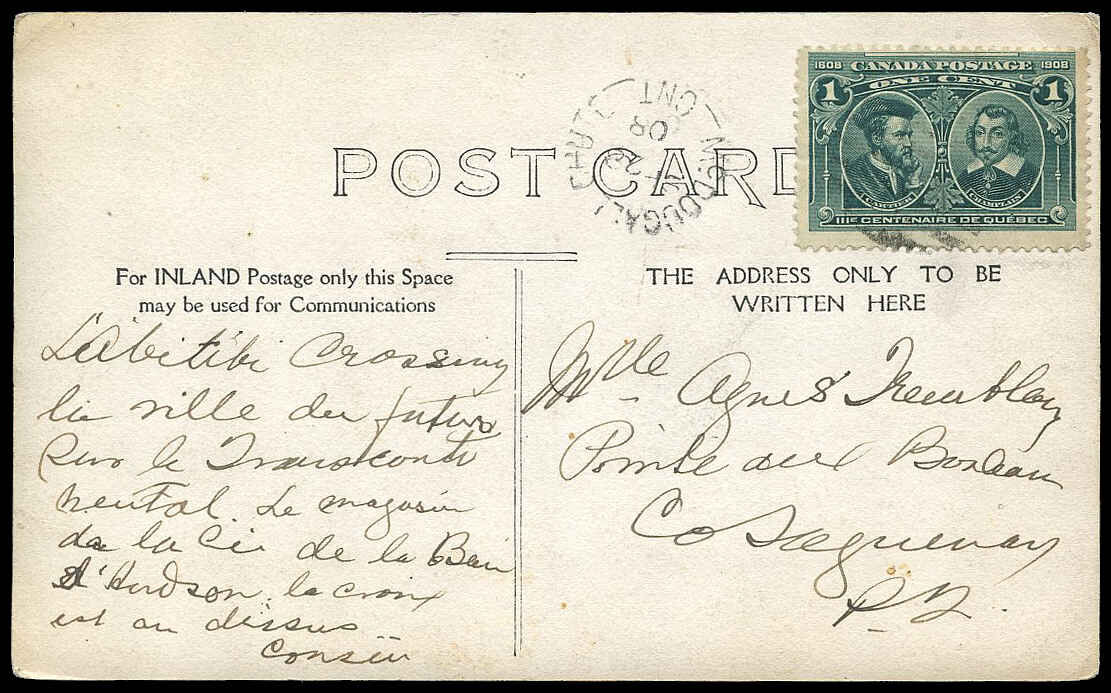 1608 CANADA POSTAGE 1908
ONE CENT
1 1
CARTIER CHAMPLAIN
IIIE CENTENAIRE DE QUÉBEC
McDOUGALL CHUTES
ONT
08
POST CARD
For INLAND Postage only this Space
may be used for Communications
THE ADDRESS ONLY TO BE
WRITTEN HERE
L'Abitibi Crossing
la ville du futur
sur le Transconti
nental. Le magasin
de la Cie de la Baie
d'Hudson. la croix
est au dessus
Mlle Agnes Tremblay
Pointe aux Bouleau
Co Saguenay
P.Q.